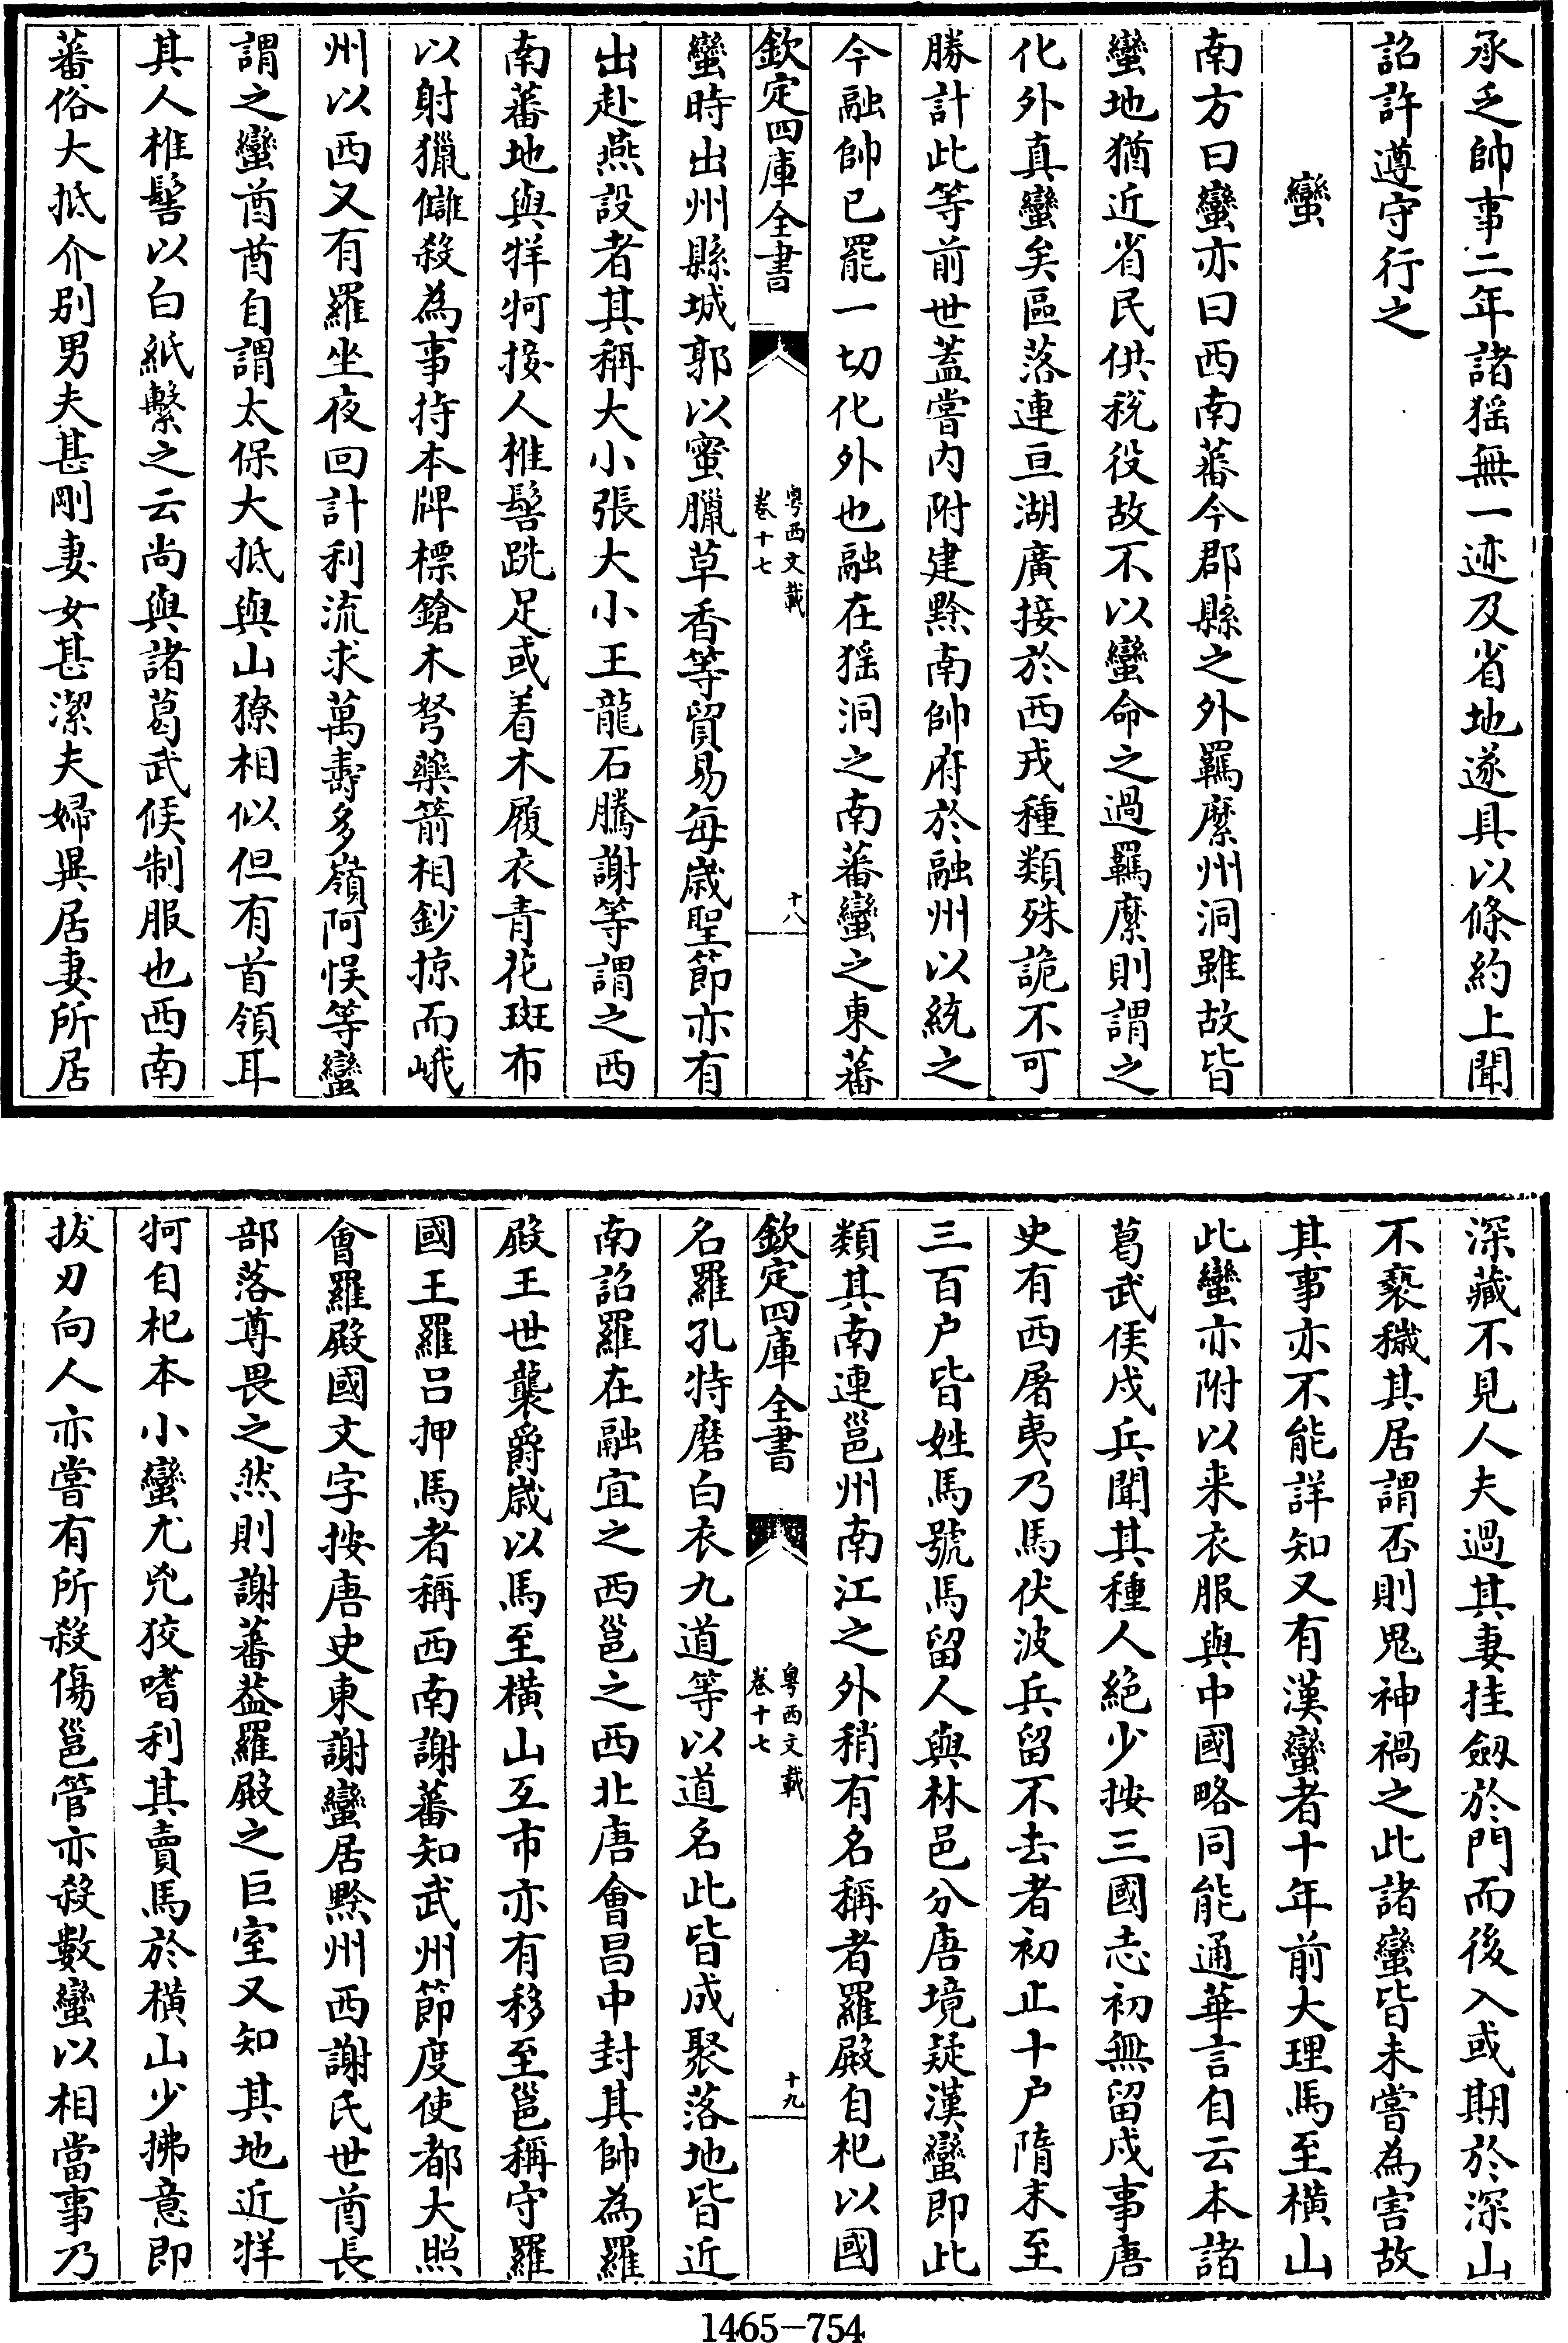 承乏帥事二年諸猺無一迹及省地遂具以條約上聞
詔許遵守行之
蠻
南方曰蠻亦曰西南蕃今郡縣之外羈縻州洞雖故皆
蠻地猶近省民供税役故不以蠻命之過羈縻則謂之
化外真蠻矣區落連亘湖廣接於西戎種類殊詭不可
勝計此等前世蓋嘗内附建黔南帥府於融州以統之
今融帥已罷一切化外也融在猺洞之南蕃蠻之東蕃
欽定四庫全書
粤西文載
卷十七
十八
蠻時出州縣城郭以蜜臘草香等貿易每歲聖節亦有
出赴燕設者其稱大小張大小王龍石騰謝等謂之西
南蕃地與牂牁接人椎髻跣足或着木履衣青花斑布
以射獵讎殺為事持本牌標鎗木弩藥箭相鈔掠而峨
州以西又有羅坐夜回計利流求萬壽多嶺阿悮等蠻
謂之蠻酋酋自謂太保大抵與山獠相似但有首領耳
其人椎髻以白紙繫之云尚與諸葛武侯制服也西南
蕃俗大抵介别男夫甚剛妻女甚潔夫婦異居妻所居
深藏不見人夫過其妻挂劔於門而後入或期於深山
不褻穢其居謂否則鬼神禍之此諸蠻皆未嘗為害故
其事亦不能詳知又有漢蠻者十年前大理馬至横山
此蠻亦附以来衣服與中國略同能通華言自云本諸
葛武侯戍兵聞其種人絶少按三國志初無留戍事唐
史有西屠夷乃馬伏波兵留不去者初止十户隋末至
三百户皆姓馬號馬留人與林邑分唐境疑漢蠻即此
類其南連邕州南江之外稍有名稱者羅殿自杞以國
欽定四庫全書
粤西文載
卷十七
十九
名羅孔特磨白衣九道等以道名此皆成聚落地皆近
南詔羅在融宜之西邕之西北唐會昌中封其帥為羅
殿王世襲爵歲以馬至横山互市亦有移至邕稱守羅
國王羅呂押馬者稱西南謝蕃知武州節度使都大照
會羅殿國文字按唐史東謝蠻居黔州西謝氏世酋長
部落尊畏之然則謝蕃葢羅殿之巨室又知其地近牂
牁自杞本小蠻尤兇狡嗜利其賣馬於横山少拂意即
拔刃向人亦嘗有所殺傷邕管亦殺數蠻以相當事乃
1465-754